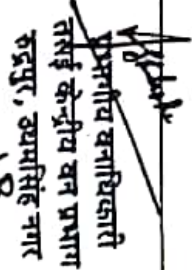 प्रभागीय वनाधिकारी
तराई केन्द्रीय वन प्रभाग
रुद्रपुर, ऊधमसिंह नगर